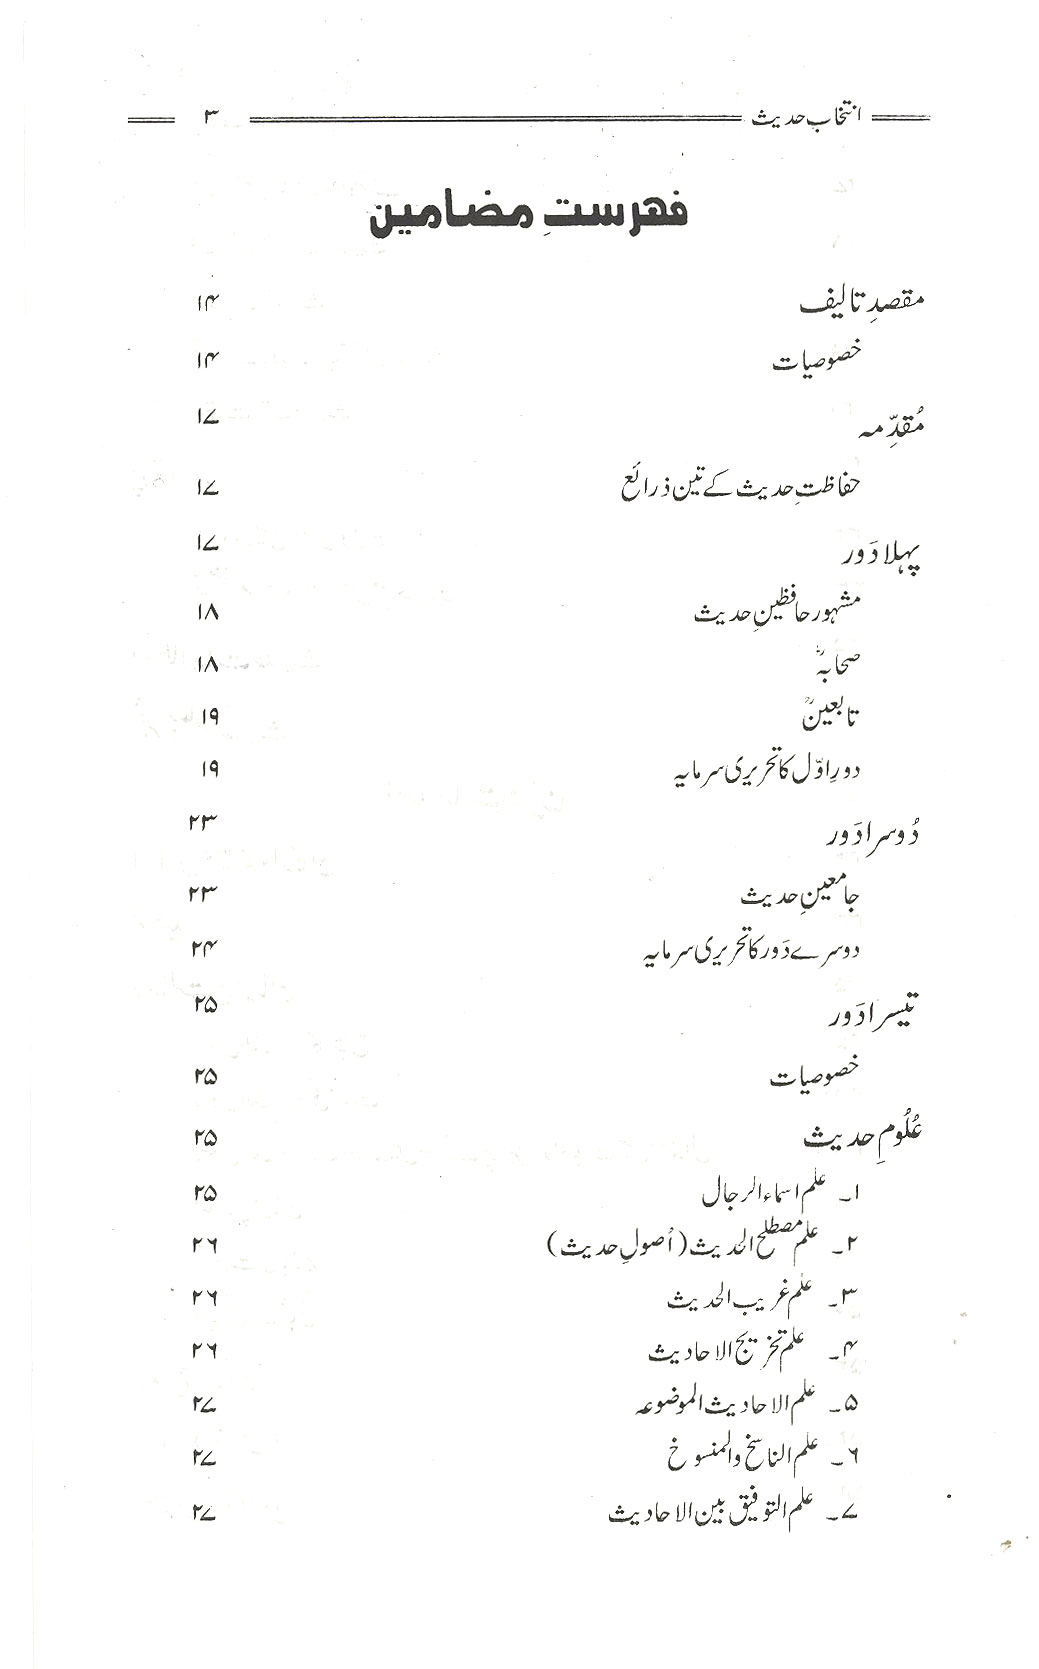 انتخاب حدیث ۳
فہرستِ مضامین
مقصدِ تالیف ۱۴
خصوصیات ۱۴
مُقدِّمہ ۱۷
حفاظتِ حدیث کے تین ذرائع ۱۷
پہلا دَور ۱۷
مشہور حافظینِ حدیث ۱۸
صحابہؓ ۱۸
تابعینؒ ۱۹
دورِ اوّل کا تحریری سرمایہ ۱۹
دُوسرا دَور ۲۳
جامعینِ حدیث ۲۳
دوسرے دَور کا تحریری سرمایہ ۲۴
تیسرا دَور ۲۵
خصوصیات ۲۵
عُلُومِ حدیث ۲۵
۱۔ علم اسماء الرجال ۲۵
۲۔ علم مصطلح الحدیث (اُصولِ حدیث) ۲۶
۳۔ علم غریب الحدیث ۲۶
۴۔ علم تخریج الاحادیث ۲۶
۵۔ علم الاحادیث الموضوعہ ۲۷
۶۔ علم الناسخ والمنسوخ ۲۷
۷۔ علم التوفیق بین الاحادیث ۲۷